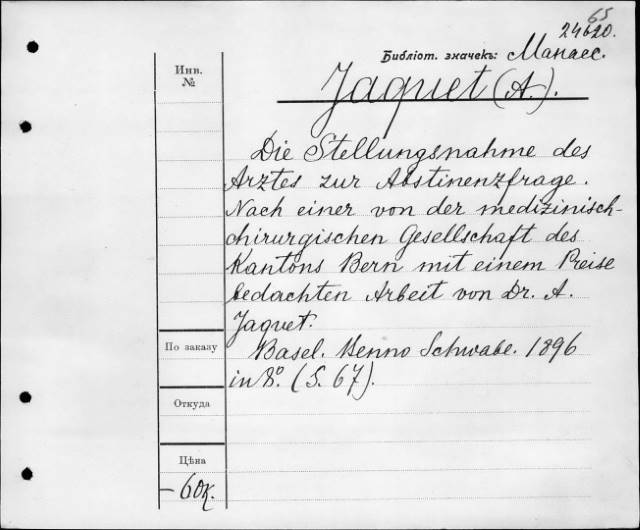 65
24620.
Библіот. значекъ: Манаес.
Инв.
№
Jaquet (A.).
Die Stellungsnahme des
Arztes zur Abstinenzfrage.
Nach einer von der medizinisch-
chirurgischen Gesellschaft des
Kantons Bern mit einem Preise
bedachten Arbeit von Dr. A.
Jaquet.
Basel. Benno Schwabe. 1896
in 8º. (S. 67).
По заказу
Откуда
Цѣна
– 60к.